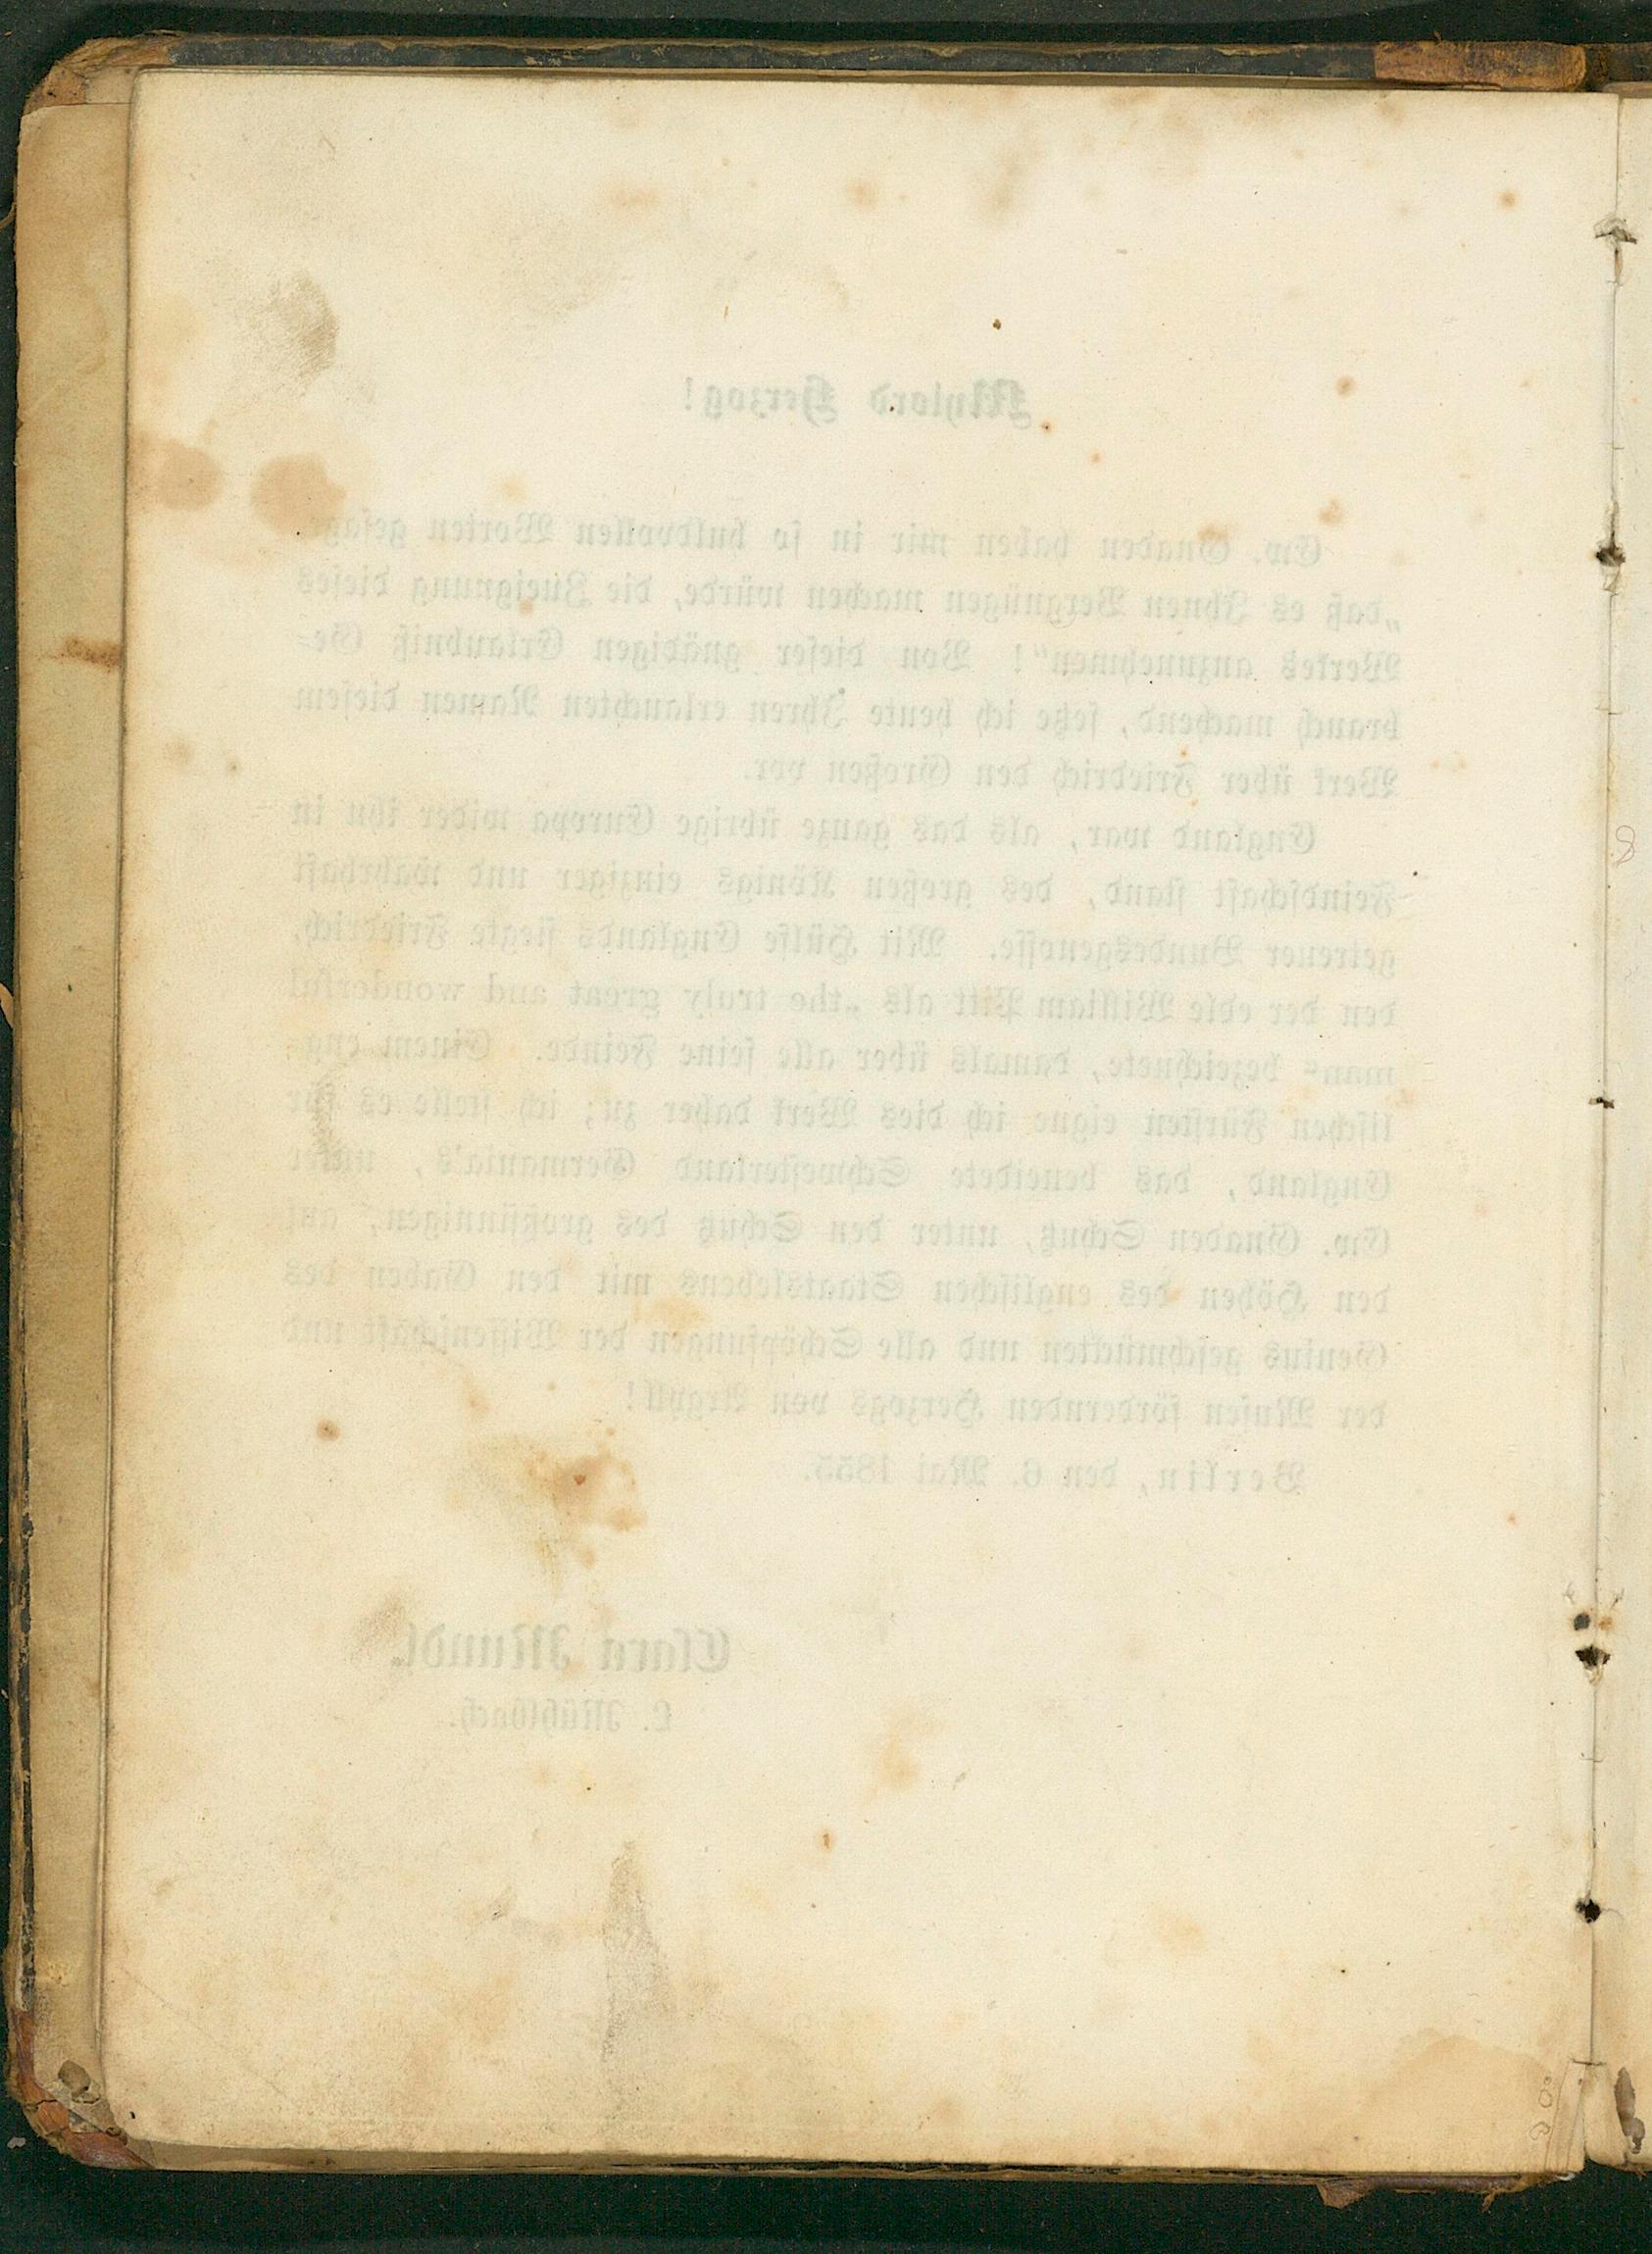 Mylord Herzog!
Ew. Gnaden haben mir in so huldvollen Worten gesagt
„daß es Ihnen Vergnügen machen würde, die Zueignung dieses
Werkes anzunehmen“! Von dieser gnädigen Erlaubniß Ge-
brauch machend, setze ich heute Ihren erlauchten Namen diesem
Werk über Friedrich den Großen vor.
England war, als das ganze übrige Europa wider ihn in
Feindschaft stand, des großen Königs einziger und wahrhaft
getreuer Bundesgenosse. Mit Hülfe Englands siegte Friedrich,
den der edle William Pitt als „the truly great and wonderful
man“ bezeichnete, damals über alle seine Feinde. Einem eng-
lischen Fürsten eigne ich dies Werk daher zu; ich stelle es für
England, das beneidete Schwesterland Germania's, unter
Ew. Gnaden Schutz, unter den Schutz des großsinnigen, auf
den Höhen des englischen Staatslebens mit den Gaben des
Genius geschmückten und alle Schöpfungen der Wissenschaft und
der Musen fördernden Herzogs von Argyll!
Berlin, den 6. Mai 1855.
Clara Mundt.
L. Mühlbach.